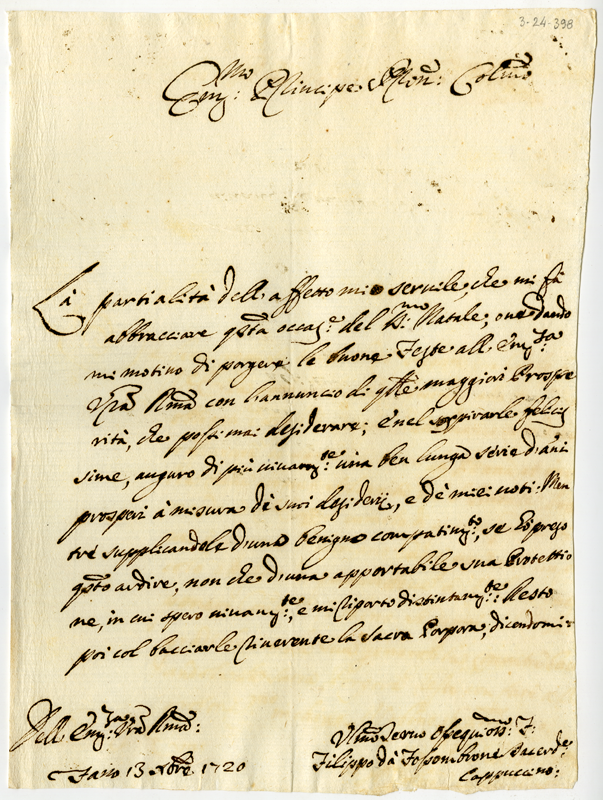 3-24-398
Em.mo Principe P.ron: Col.mo
Là partialità dell affetto mio servile, che mi fà
abbracciare q.sta occas.e del S.mo Natale, ond dando
mi motivo di porgere le buone Feste all Em.za
V.ra R.ma con l'annuncio di q.lle maggiori Prospe
rità, che possi mai desiderare; è nel sospirarle felicis
sime, auguro di più vivam.te una ben lunga serie d'ani
prosperi à misura dè suoi desiderij, e dè miei voti: Men
trè supplicandola d'una benigno compatim.to, se Espreso
q.sto ardire, non che d'una apportabile sua Protettio
ne, in cui spero vivam.te, e mi riporto distintam.te: Resto
poi col bacciarle riverente la Sacra Porpora, dicendomi=
Dell Em.za V.ra R.ma:
Fano 13 Xbre 1720
V.mo Servo Ossequios.mo F:
Filippo dà Fossombrone Sacerd.e
Cappuccino: